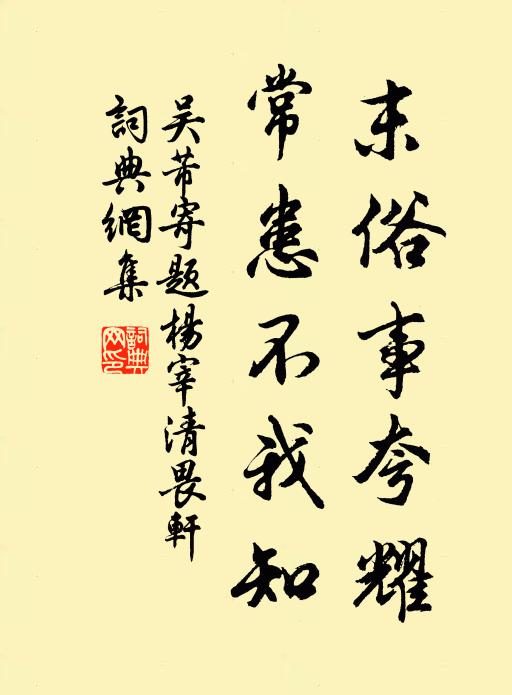 末俗事夸耀
常患不我知
吴芾寄题楊宰清畏軒
詞典網集
詞典网印